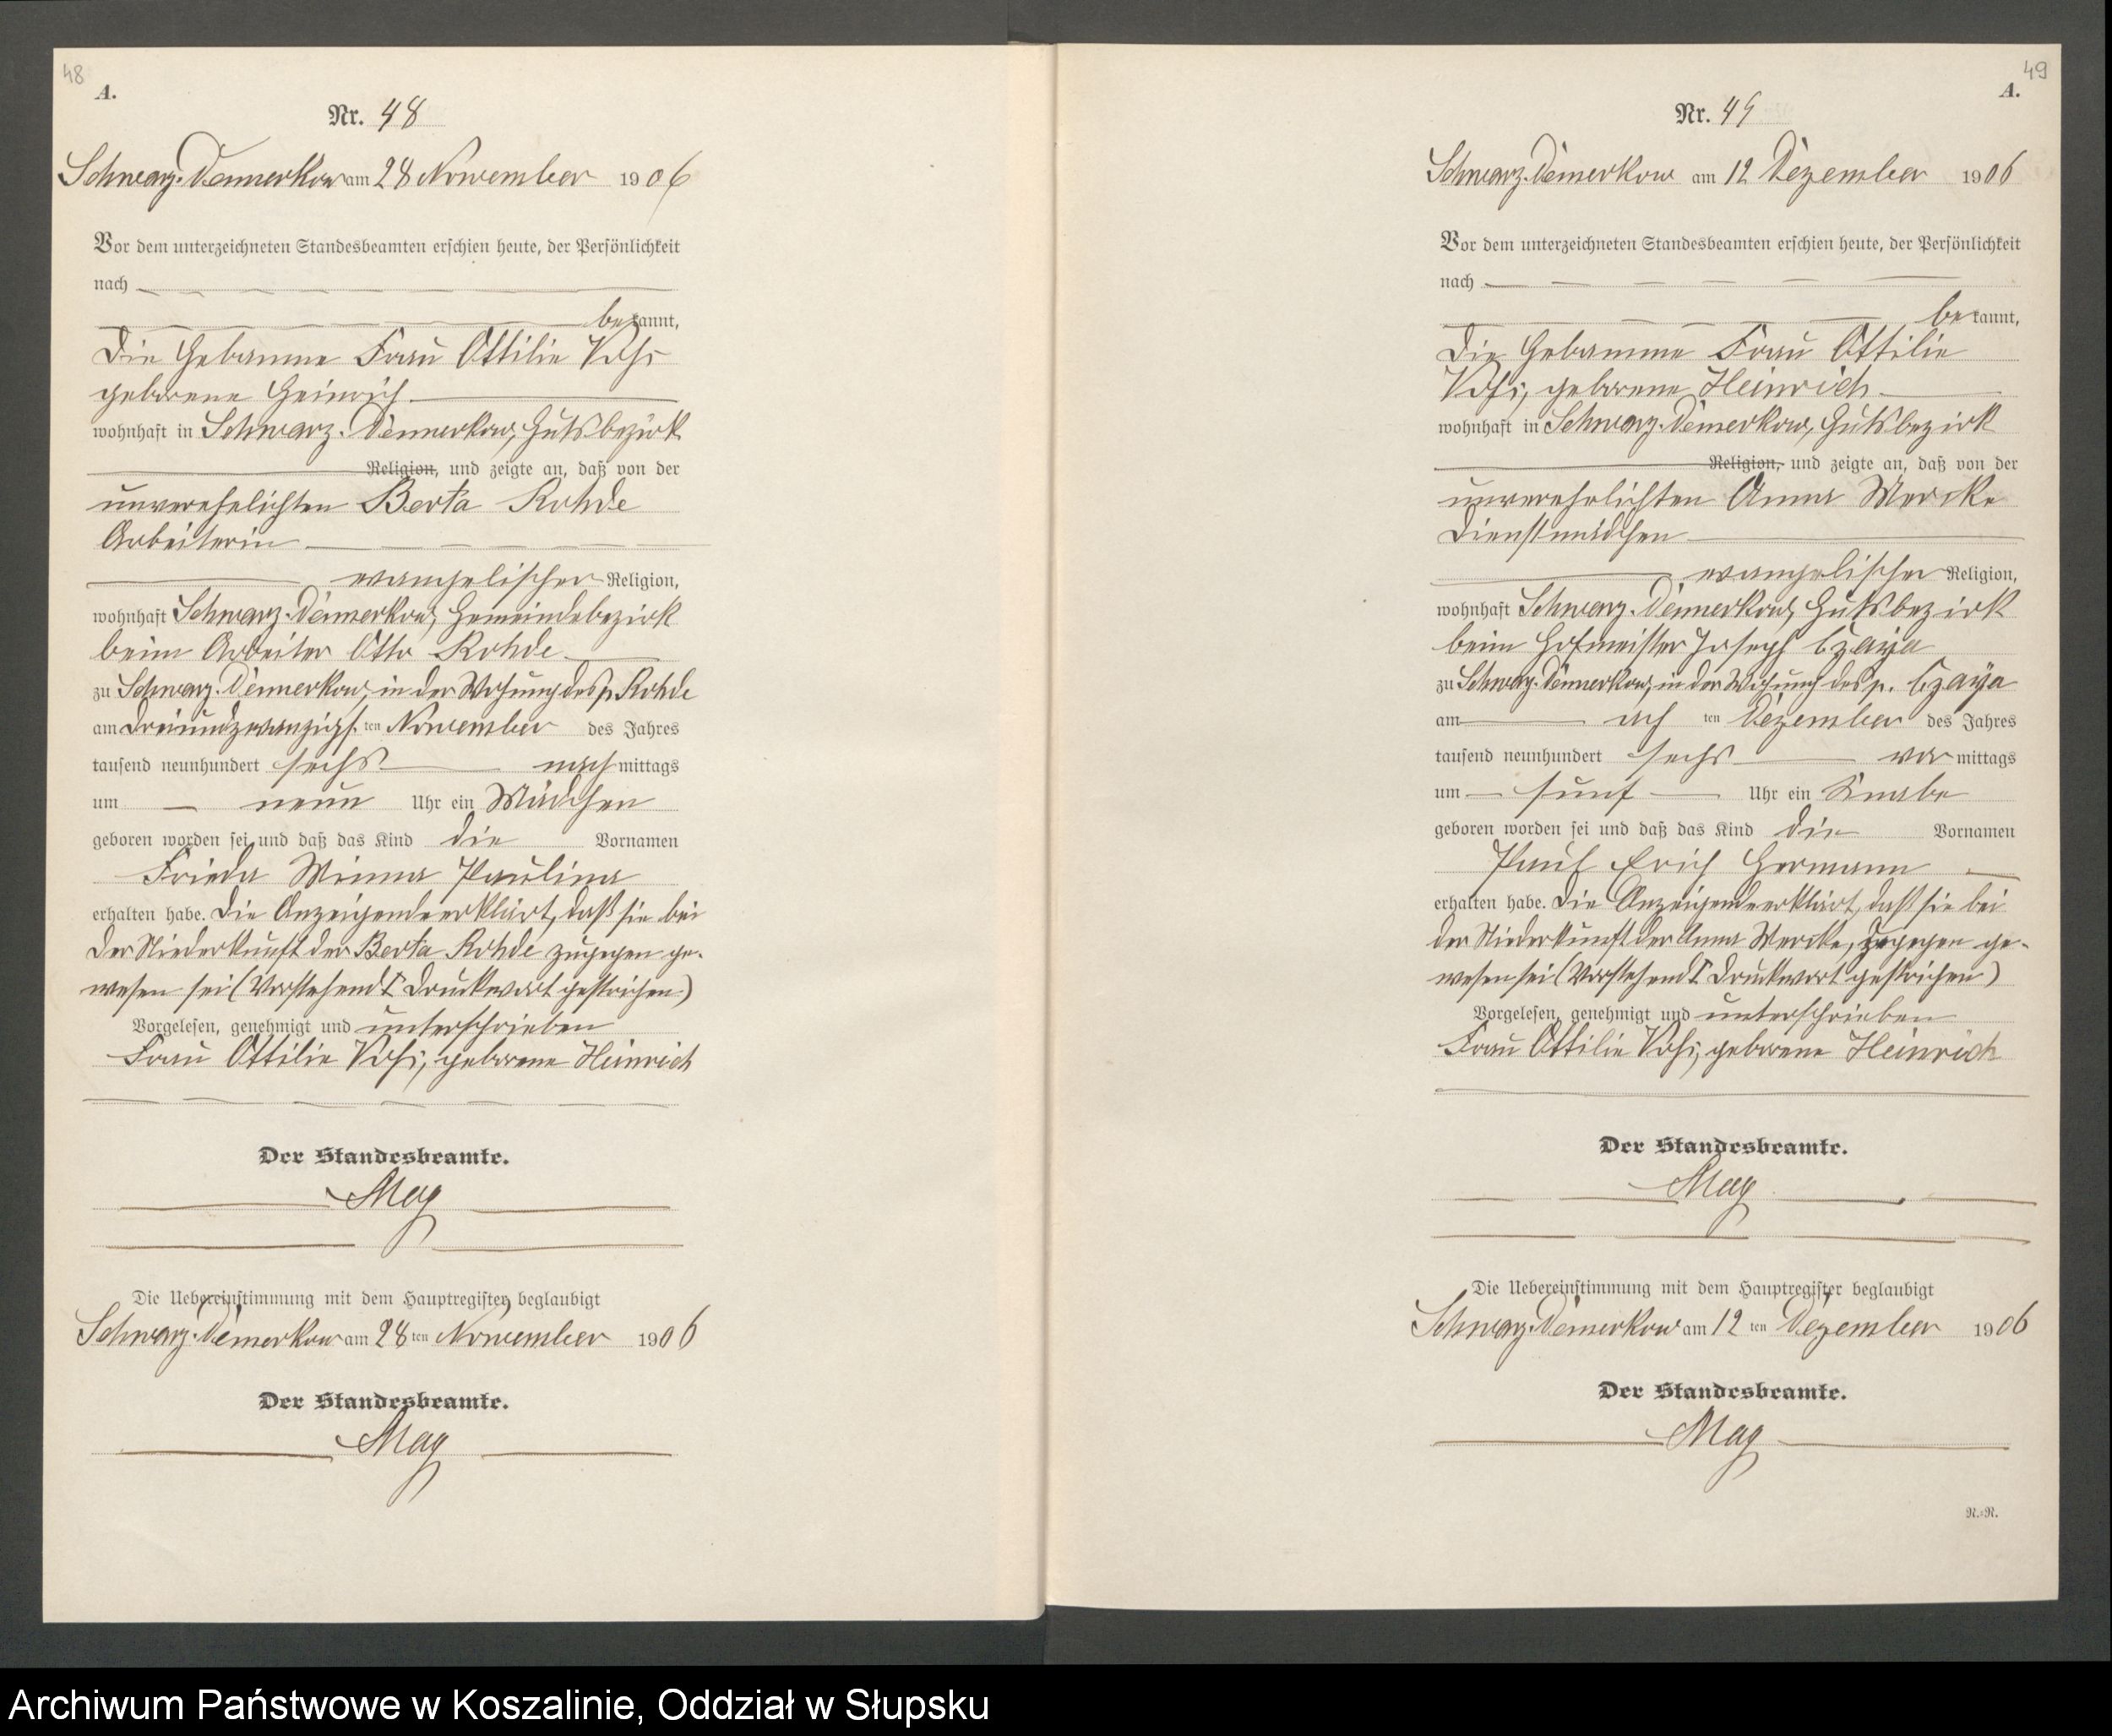 48
A.
Nr. 48
Schwarz-Damerkow am 28 November 1906
Vor dem unterzeichneten Standesbeamten erschien heute, der Persönlichkeit
nach
bekannt,
die Hebamme Frau Ottilie Voß
geborene Heinrich
wohnhaft in Schwarz-Damerkow, Gutsbezirk
Religion, und zeigte an, daß von der
unverehelichten Berta Rohde
Arbeiterin
evangelischer Religion,
wohnhaft Schwarz-Damerkow, Gemeindebezirk
beim Arbeiter Otto Rohde
zu Schwarz-Damerkow, in der Wohnung des p. Rohde
am dreiundzwanzigsten November des Jahres
tausend neunhundert sechs nachmittags
um neun Uhr ein Mädchen
geboren worden sei und daß das Kind die Vornamen
Frieda Minna Paulina
erhalten habe. Die Anzeigende erklärt, daß sie bei
der Niederkunft der Berta Rohde zugegen ge-
wesen sei (Vorstehend 1 Druckwort gestrichen)
Vorgelesen, genehmigt und unterschrieben
Frau Ottilie Voß, geborene Heinrich
Der Standesbeamte.
Mag
Die Uebereinstimmung mit dem Hauptregister beglaubigt
Schwarz-Damerkow am 28ten November 1906
Der Standesbeamte.
Mag
49
A.
Nr. 49
Schwarz-Damerkow am 12 Dezember 1906
Vor dem unterzeichneten Standesbeamten erschien heute, der Persönlichkeit
nach
bekannt,
die Hebamme Frau Ottilie
Voß, geborene Heinrich
wohnhaft in Schwarz-Damerkow, Gutsbezirk
Religion, und zeigte an, daß von der
unverehelichten Anna
Dienstmädchen
evangelischer Religion,
wohnhaft Schwarz-Damerkow, Gutsbezirk
beim Hofmeister Joseph Czaya
zu Schwarz-Damerkow, in der Wohnung des p. Czaya
am achten Dezember des Jahres
tausend neunhundert sechs vormittags
um fünf Uhr ein Knabe
geboren worden sei und daß das Kind die Vornamen
Paul Erich Hermann
erhalten habe. Die Anzeigende erklärt, daß sie bei
der Niederkunft der Anna zugegen ge-
wesen sei (Vorstehend 1 Druckwort gestrichen)
Vorgelesen, genehmigt und unterschrieben
Frau Ottilie Voß, geborene Heinrich
Der Standesbeamte.
Mag
Die Uebereinstimmung mit dem Hauptregister beglaubigt
Schwarz-Damerkow am 12ten Dezember 1906
Der Standesbeamte.
Mag
N.-R.
Archiwum Państwowe w Koszalinie, Oddział w Słupsku